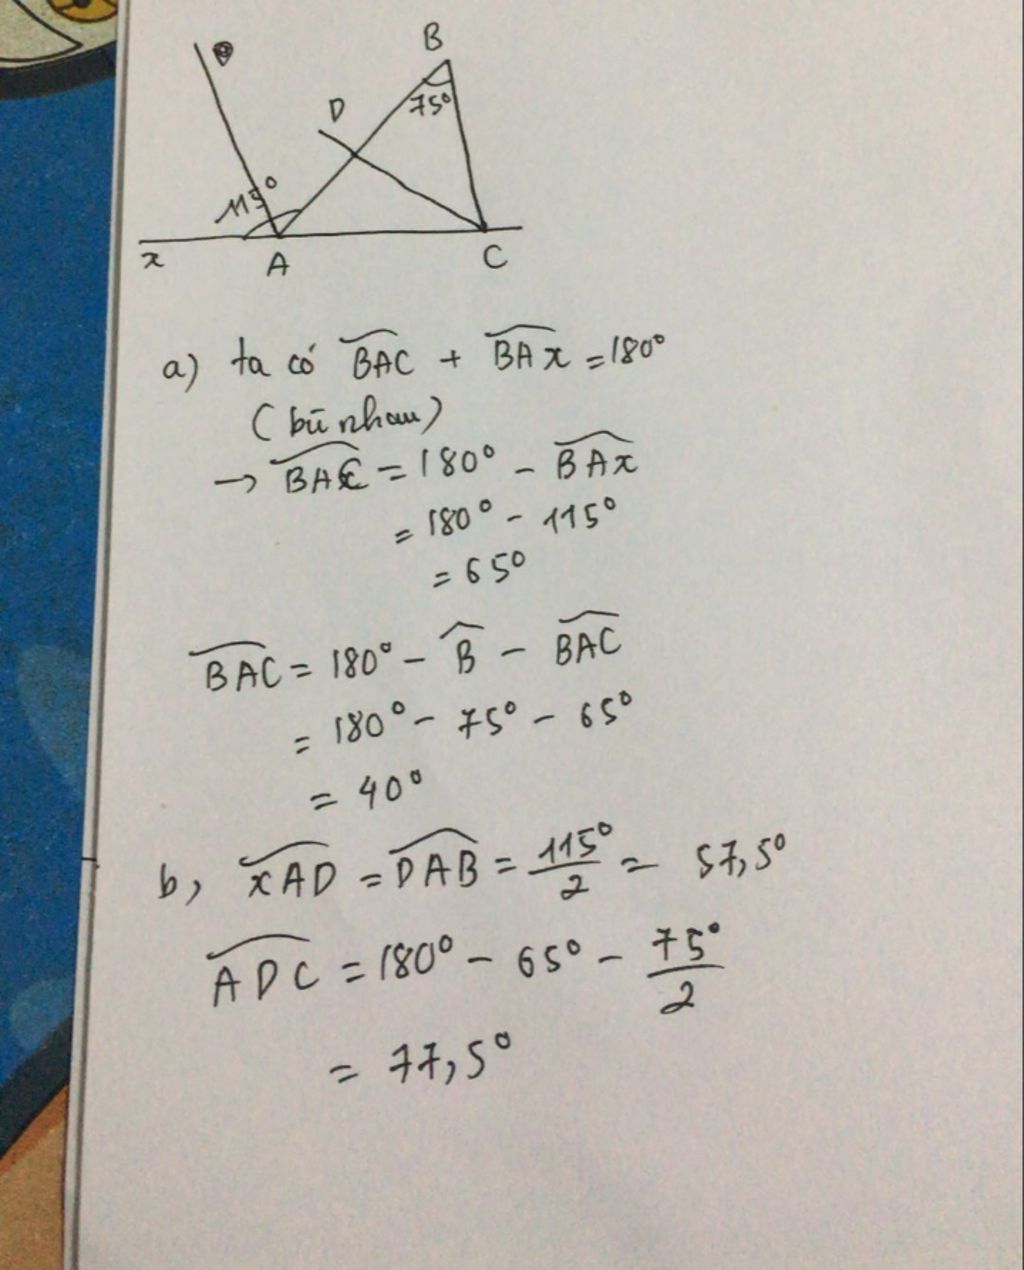 B
D
75°
115°
x
A
C
a) ta có BAC + BAx = 180°
(bù nhau)
→ BAC = 180° - BAx
= 180° - 115°
= 65°
BAC = 180° - B - BAC
= 180° - 75° - 65°
= 40°
b, xAD = DAB = 115°/2 = 57,5°
ADC = 180° - 65° - 75°/2
= 77,5°